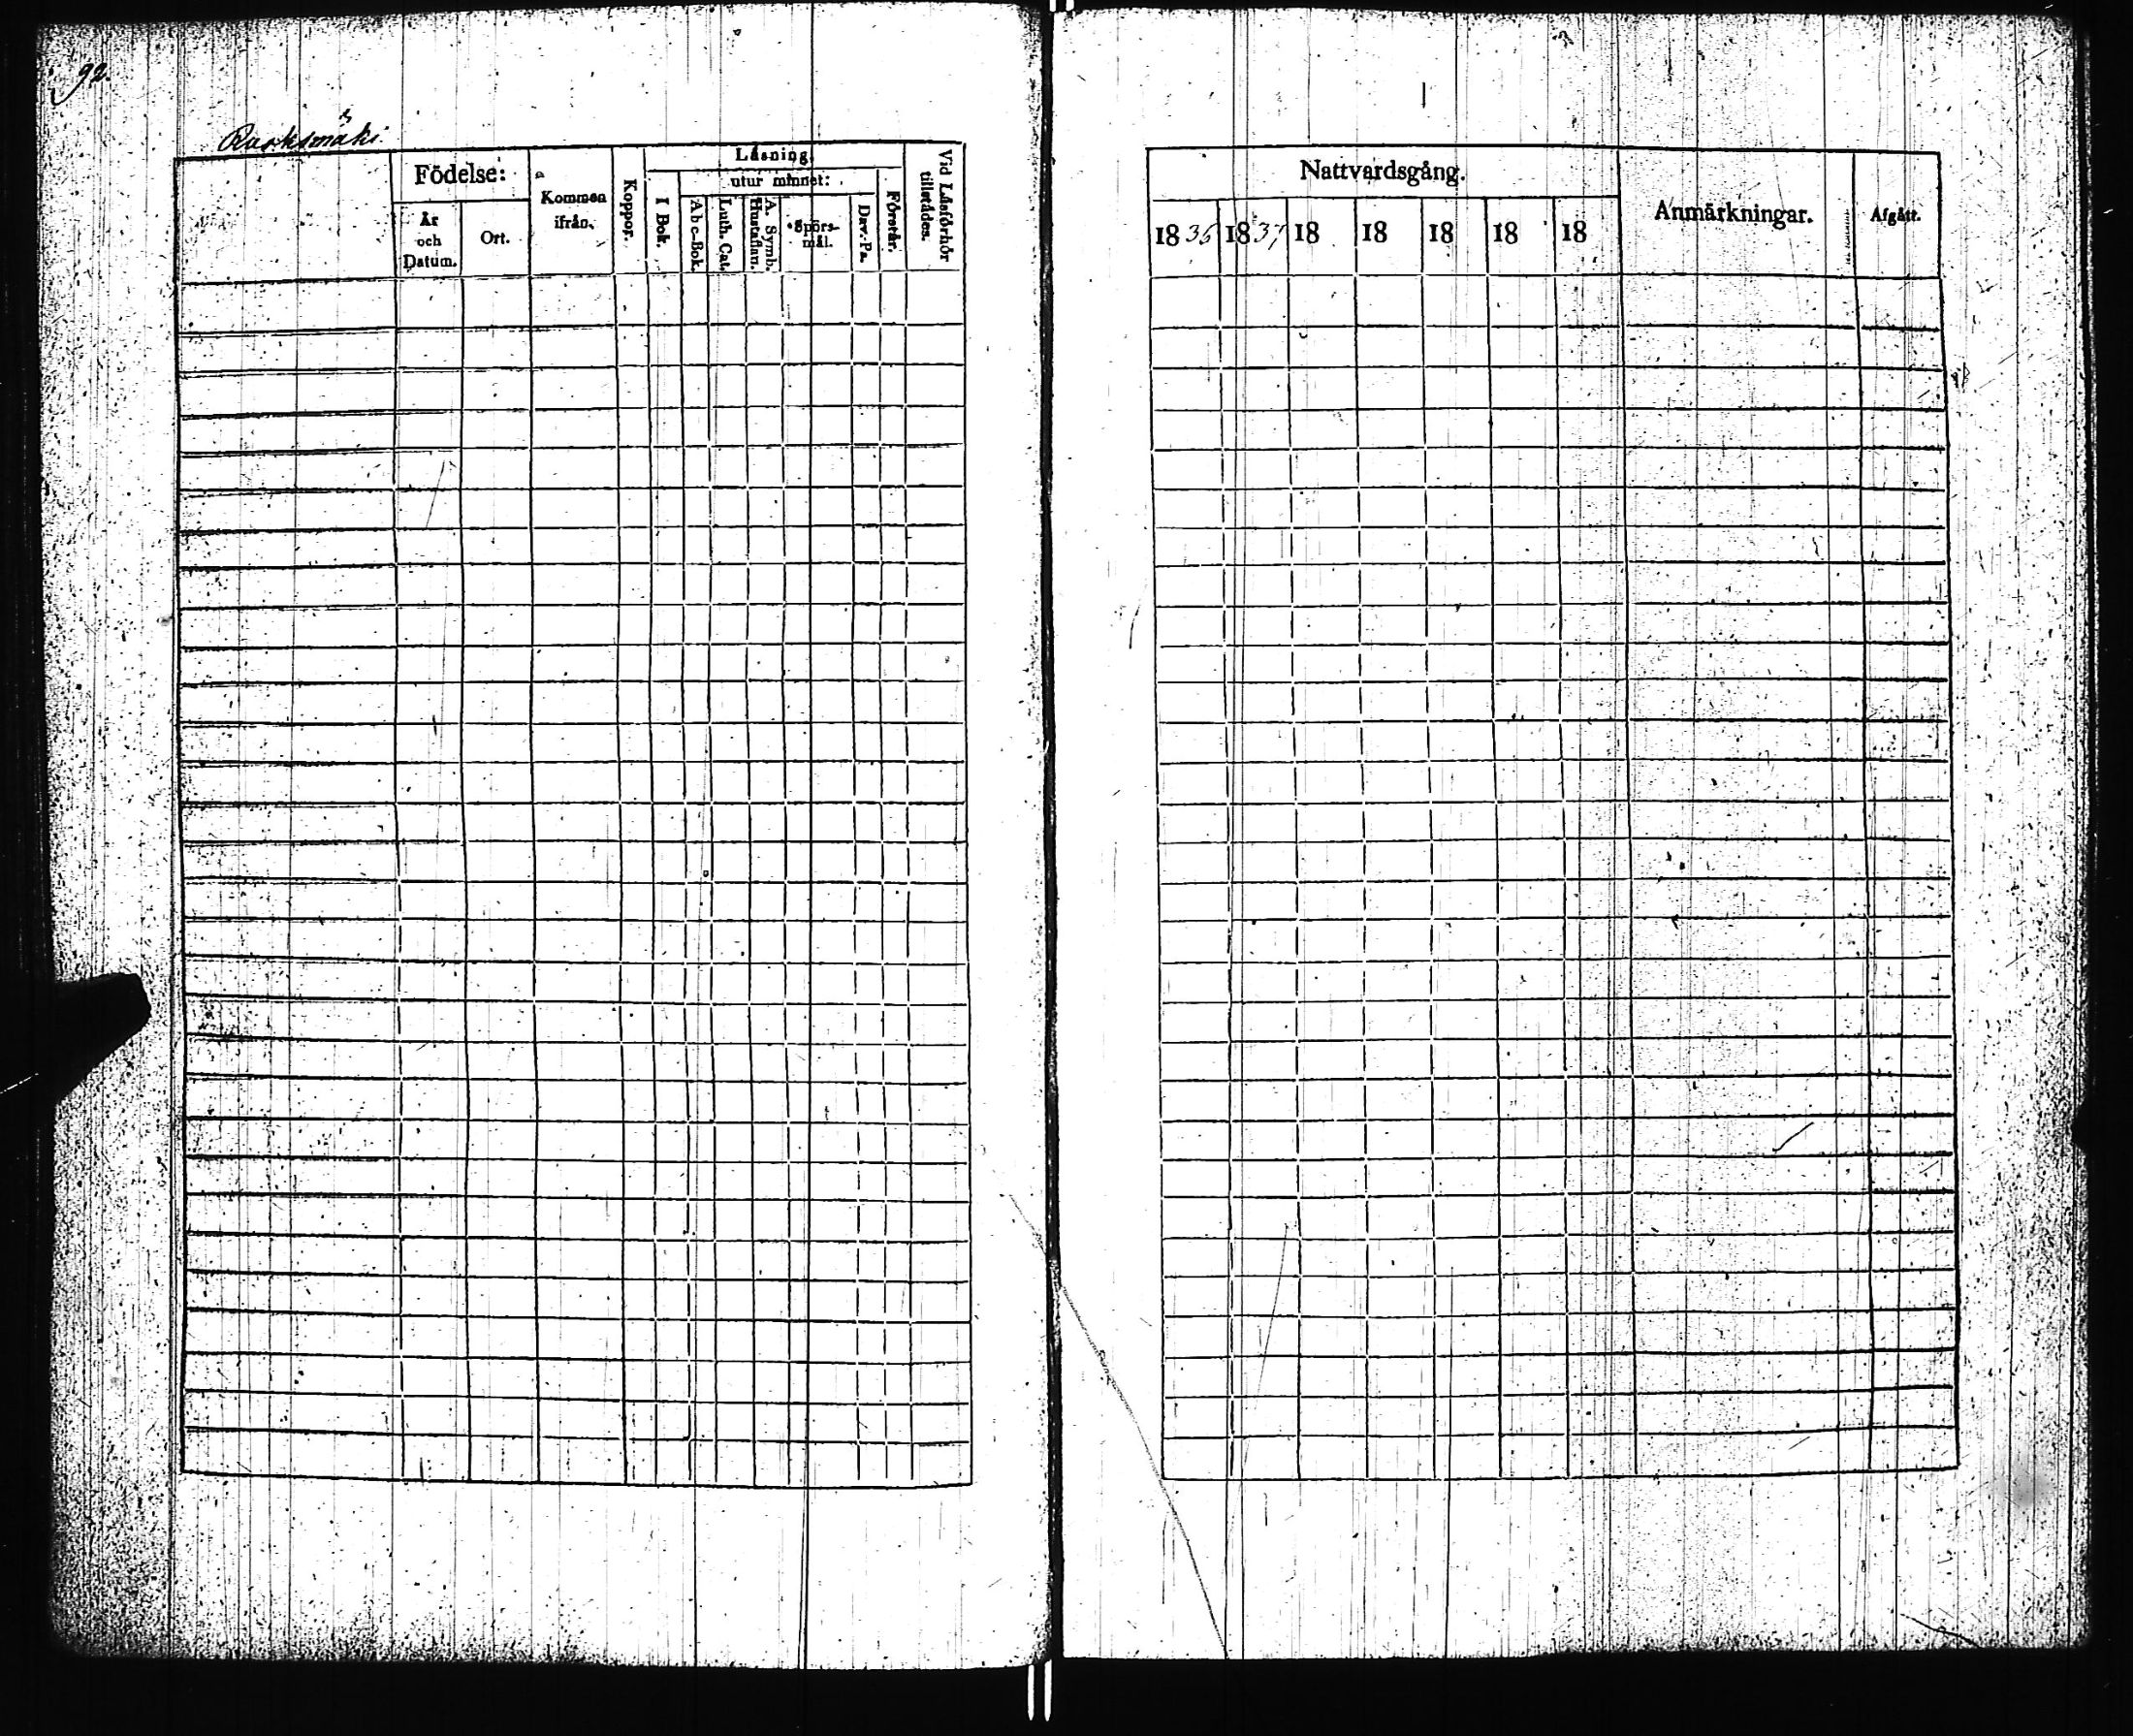 92.
Födelse:
År och Datum.
Ort.
Kommen ifrån.
Koppor.
Läsning
I Bok.
utur minnet:
Abc-Bok.
Luth. Cat.
A. Symb. Hustaflan.
Spörs-mål.
Dav. Ps.
Förstår.
Vid Läsförhör tillstädes.
Nattvardsgång.
1835 1837 18 18 18 18 18
Anmärkningar.
Afgått.